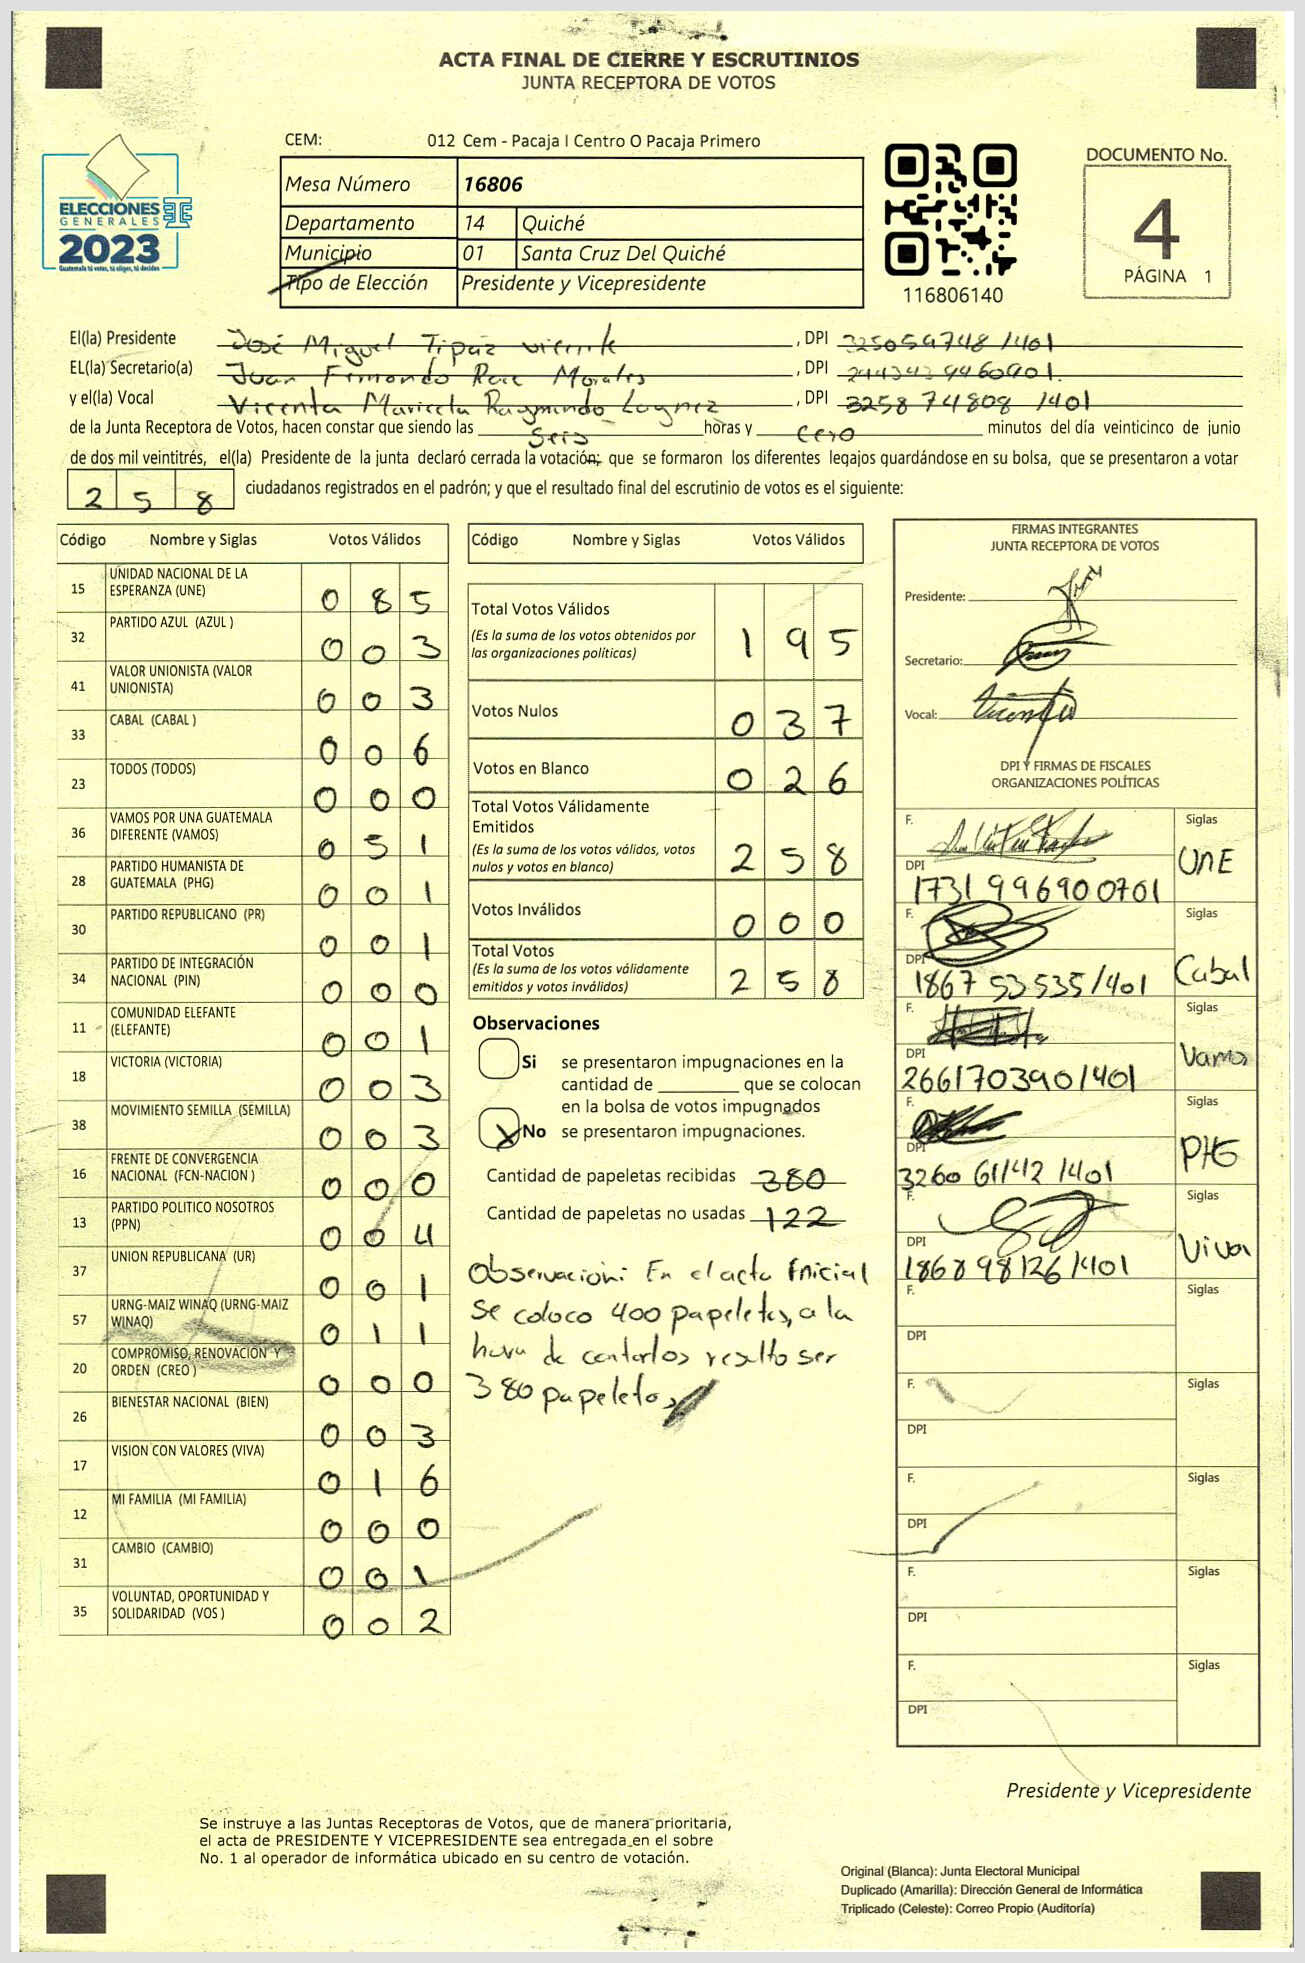 ACTA FINAL DE CIERRE Y ESCRUTINIOS
JUNTA RECEPTORA DE VOTOS
CEM: 012 Cem - Pacaja I Centro O Pacaja Primero
Mesa Número 16806
Departamento 14 Quiché
Municipio 01 Santa Cruz Del Quiché
Tipo de Elección Presidente y Vicepresidente
ELECCIONES
GENERALES
2023
Guatemala tú votas, tú eliges, tú decides
116806140
DOCUMENTO No.
4
PÁGINA 1
El(la) Presidente José Miguel Tipáz Vicente, DPI 325059748 1401
EL(la) Secretario(a) Juan Morales, DPI
y el(la) Vocal Vicenta Maricela Raymundo Laynez, DPI 3258 74808 1401
de la Junta Receptora de Votos, hacen constar que siendo las seis horas y cero minutos del día veinticinco de junio
de dos mil veintitrés, el(la) Presidente de la junta declaró cerrada la votación; que se formaron los diferentes legajos guardándose en su bolsa, que se presentaron a votar
258 ciudadanos registrados en el padrón; y que el resultado final del escrutinio de votos es el siguiente:
Código Nombre y Siglas Votos Válidos
15 UNIDAD NACIONAL DE LA ESPERANZA (UNE) 0 8 5
32 PARTIDO AZUL (AZUL ) 0 0 3
41 VALOR UNIONISTA (VALOR UNIONISTA) 0 0 3
33 CABAL (CABAL ) 0 0 6
23 TODOS (TODOS) 0 0 0
36 VAMOS POR UNA GUATEMALA DIFERENTE (VAMOS) 0 5 1
28 PARTIDO HUMANISTA DE GUATEMALA (PHG) 0 0 1
30 PARTIDO REPUBLICANO (PR) 0 0 1
34 PARTIDO DE INTEGRACIÓN NACIONAL (PIN) 0 0 0
11 COMUNIDAD ELEFANTE (ELEFANTE) 0 0 1
18 VICTORIA (VICTORIA) 0 0 3
38 MOVIMIENTO SEMILLA (SEMILLA) 0 0 3
16 FRENTE DE CONVERGENCIA NACIONAL (FCN-NACION ) 0 0 0
13 PARTIDO POLITICO NOSOTROS (PPN) 0 0 4
37 UNION REPUBLICANA (UR) 0 0 1
57 URNG-MAIZ WINAQ (URNG-MAIZ WINAQ) 0 1 1
20 COMPROMISO, RENOVACIÓN Y ORDEN (CREO ) 0 0 0
26 BIENESTAR NACIONAL (BIEN) 0 0 3
17 VISION CON VALORES (VIVA) 0 1 6
12 MI FAMILIA (MI FAMILIA) 0 0 0
31 CAMBIO (CAMBIO) 0 0 1
35 VOLUNTAD, OPORTUNIDAD Y SOLIDARIDAD (VOS ) 0 0 2
Código Nombre y Siglas Votos Válidos
Total Votos Válidos 1 9 5
(Es la suma de los votos obtenidos por
las organizaciones políticas)
Votos Nulos 0 3 7
Votos en Blanco 0 2 6
Total Votos Válidamente
Emitidos
(Es la suma de los votos válidos, votos
nulos y votos en blanco) 2 5 8
Votos Inválidos 0 0 0
Total Votos
(Es la suma de los votos válidamente
emitidos y votos inválidos) 2 5 8
Observaciones
Si se presentaron impugnaciones en la
cantidad de ________ que se colocan
en la bolsa de votos impugnados
X No se presentaron impugnaciones.
Cantidad de papeletas recibidas 380
Cantidad de papeletas no usadas 122
Observación: En el acta inicial
se coloco 400 papeletas, a la
hora de contarlos resulto ser
380 papeletas
FIRMAS INTEGRANTES
JUNTA RECEPTORA DE VOTOS
Presidente:
Secretario:
Vocal: Vicenta
DPI Y FIRMAS DE FISCALES
ORGANIZACIONES POLÍTICAS
F. Siglas
DPI 1731 996900701 UNE
F. Siglas
DPI 1867 53535 1401 Cabal
F. Siglas
DPI 266170390 1401 Vamos
F. Siglas
DPI 3260 61142 1401 PHG
F. Siglas
DPI 1868 98126 1401 Viva
F. Siglas
DPI
F. Siglas
DPI
F. Siglas
DPI
F. Siglas
DPI
F. Siglas
DPI
Presidente y Vicepresidente
Se instruye a las Juntas Receptoras de Votos, que de manera prioritaria,
el acta de PRESIDENTE Y VICEPRESIDENTE sea entregada en el sobre
No. 1 al operador de informática ubicado en su centro de votación.
Original (Blanca): Junta Electoral Municipal
Duplicado (Amarilla): Dirección General de Informática
Triplicado (Celeste): Correo Propio (Auditoría)